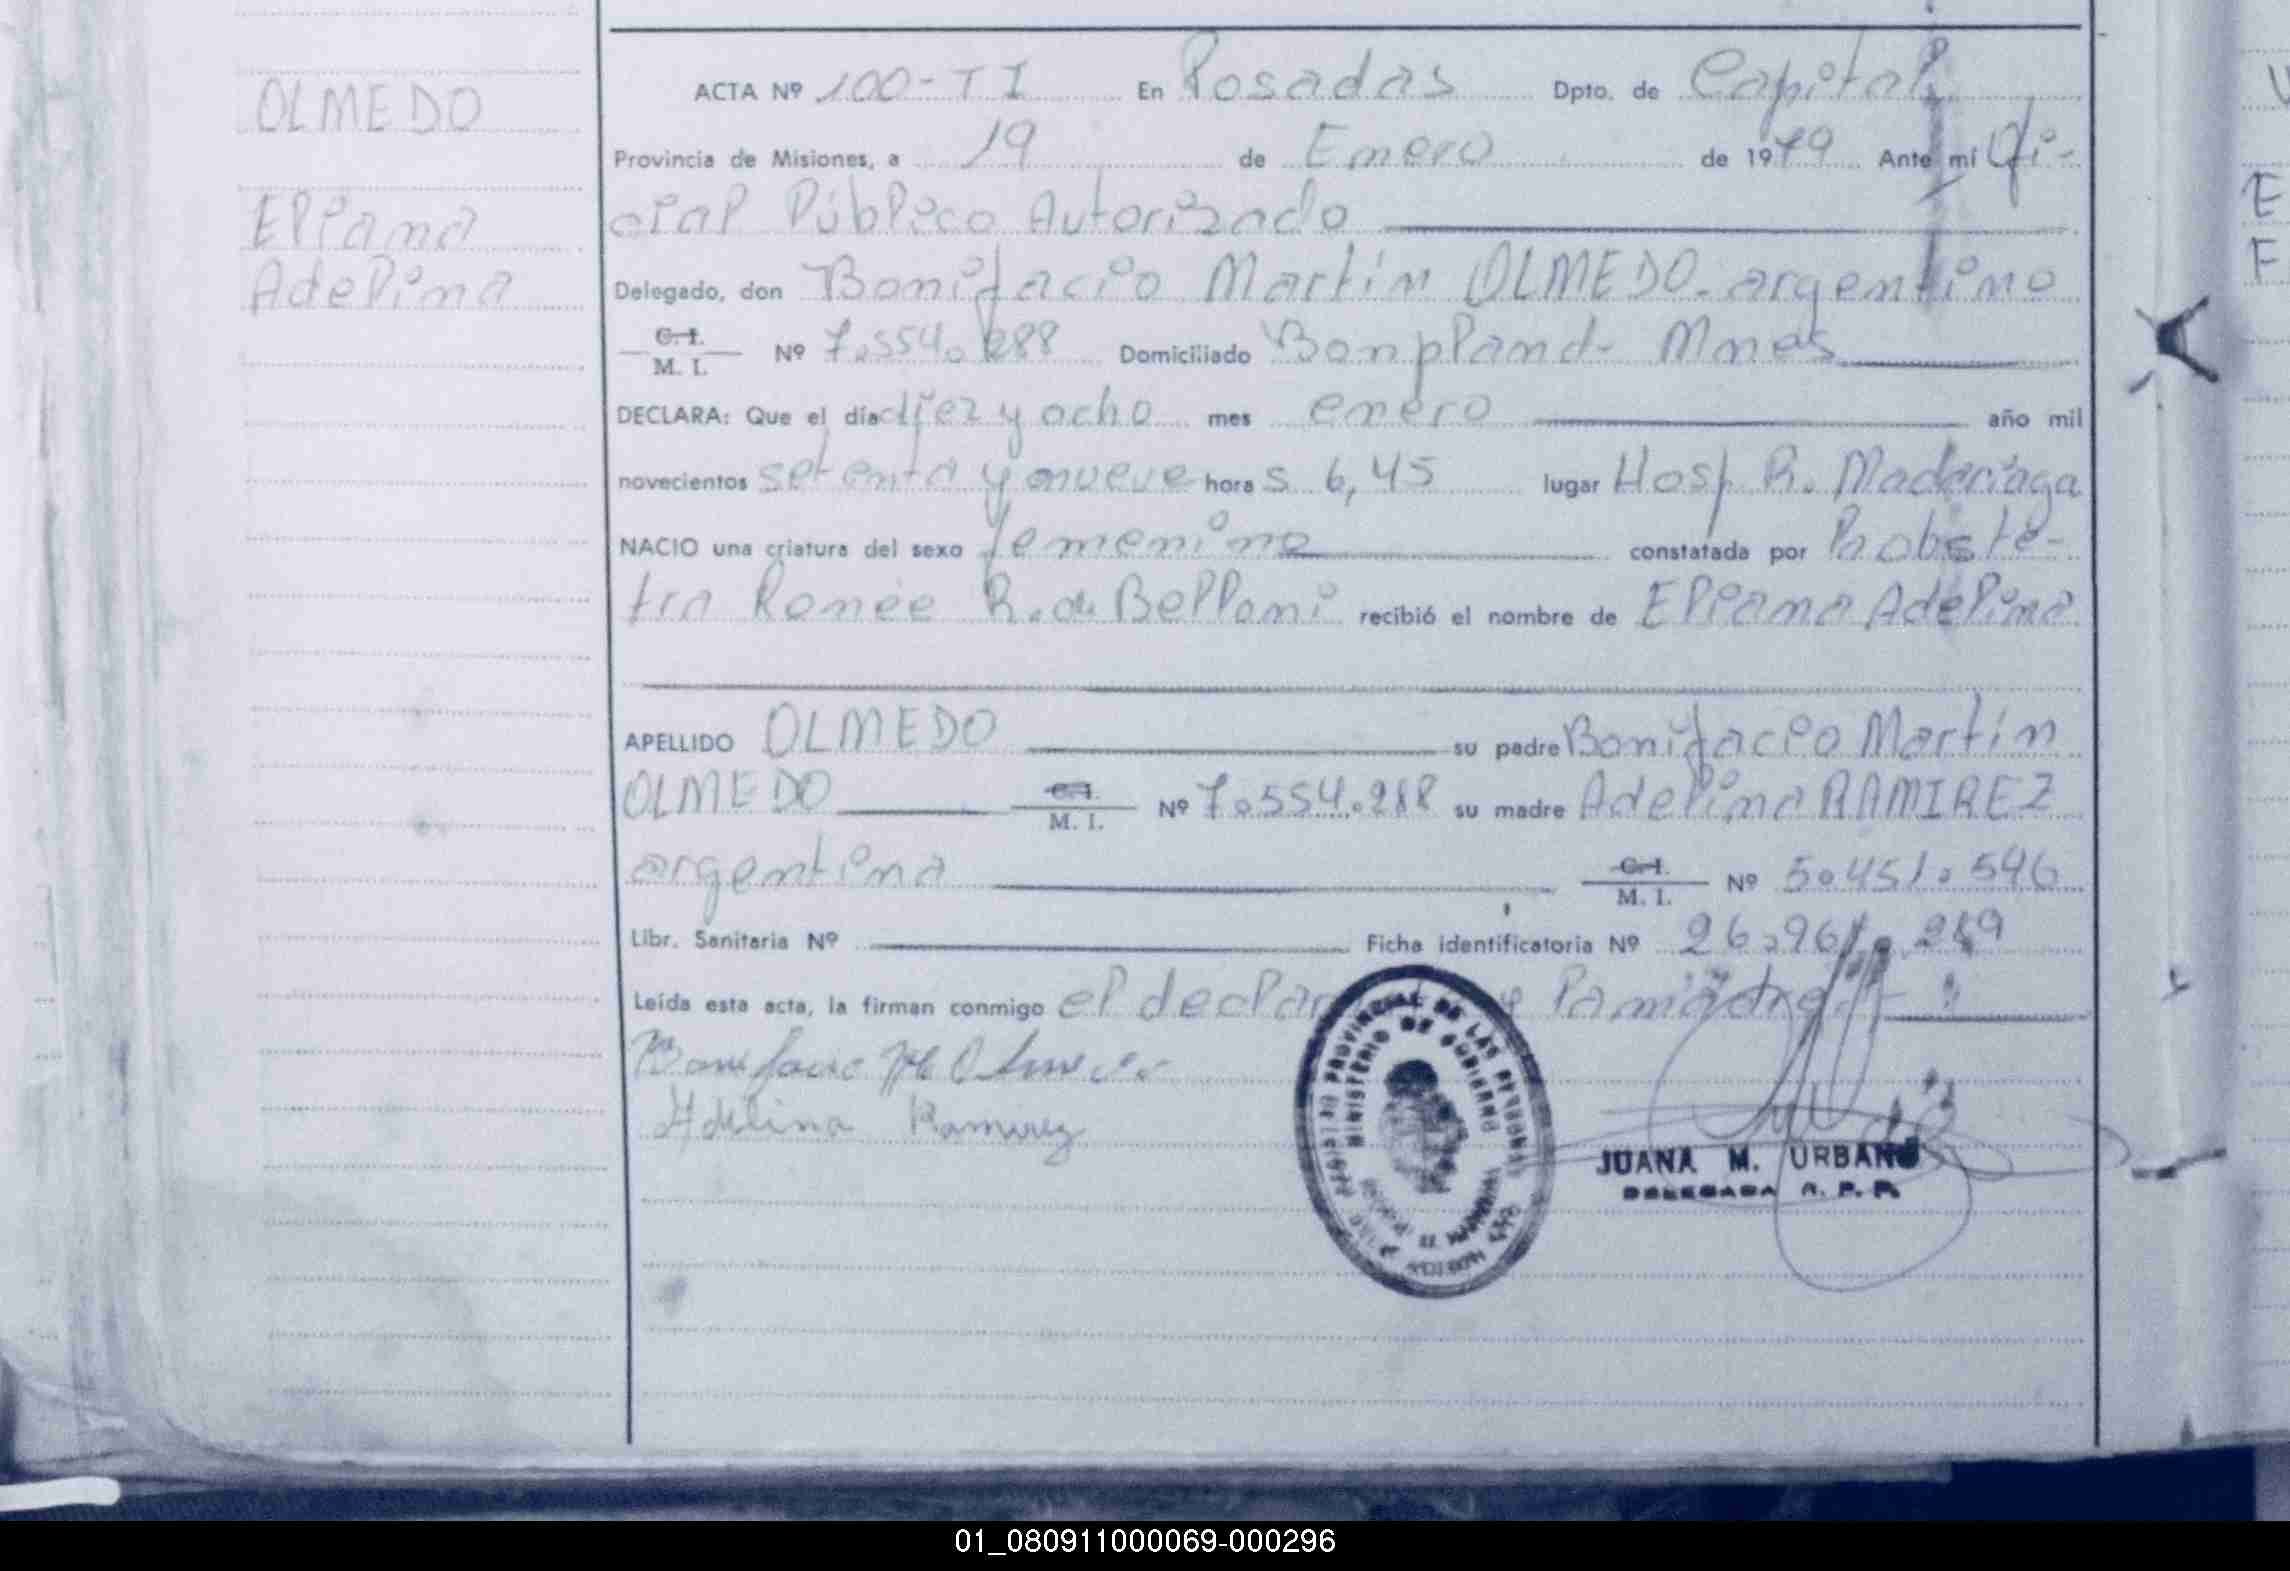 OLMEDO
Eliana
Adelina
ACTA Nº 100-TI En Posadas Dpto. de Capital
Provincia de Misiones, a 19 de Enero de 1979 Ante mí Ofi-
cial Público Autorizado
Delegado, don Bonifacio Martín OLMEDO. argentino
C. I.
M. I. Nº 7.554.288 Domiciliado Bonpland- Mnes
DECLARA: Que el día diez y ocho mes enero año mil
novecientos setenta y nueve hora s 6,45 lugar Hosp. R. Madariaga
NACIO una criatura del sexo femenino constatada por la obsté-
tra Renée R. de Belloni recibió el nombre de Eliana Adelina
APELLIDO OLMEDO su padre Bonifacio Martín
OLMEDO C. I.
M. I. Nº 7.554.288 su madre Adelina RAMIREZ
argentina C. I.
M. I. Nº 5.451.546
Libr. Sanitaria Nº Ficha identificatoria Nº 26.961.289
Leída esta acta, la firman conmigo el declarante y la madre
Bonifacio M Olmedo
Adelina Ramirez
REGISTRO PROVINCIAL DE LAS PERSONAS
MINISTERIO DE GOBIERNO
JUANA M. URBANO
DELEGADA R. P. P.
01_080911000069-000296